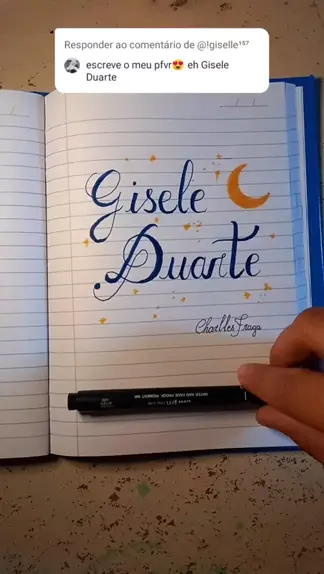 Responder ao comentário de @!giselle¹⁵⁷
escreve o meu pfvr😍 eh Gisele
Duarte
Gisele
Duarte
Charlles Fraga